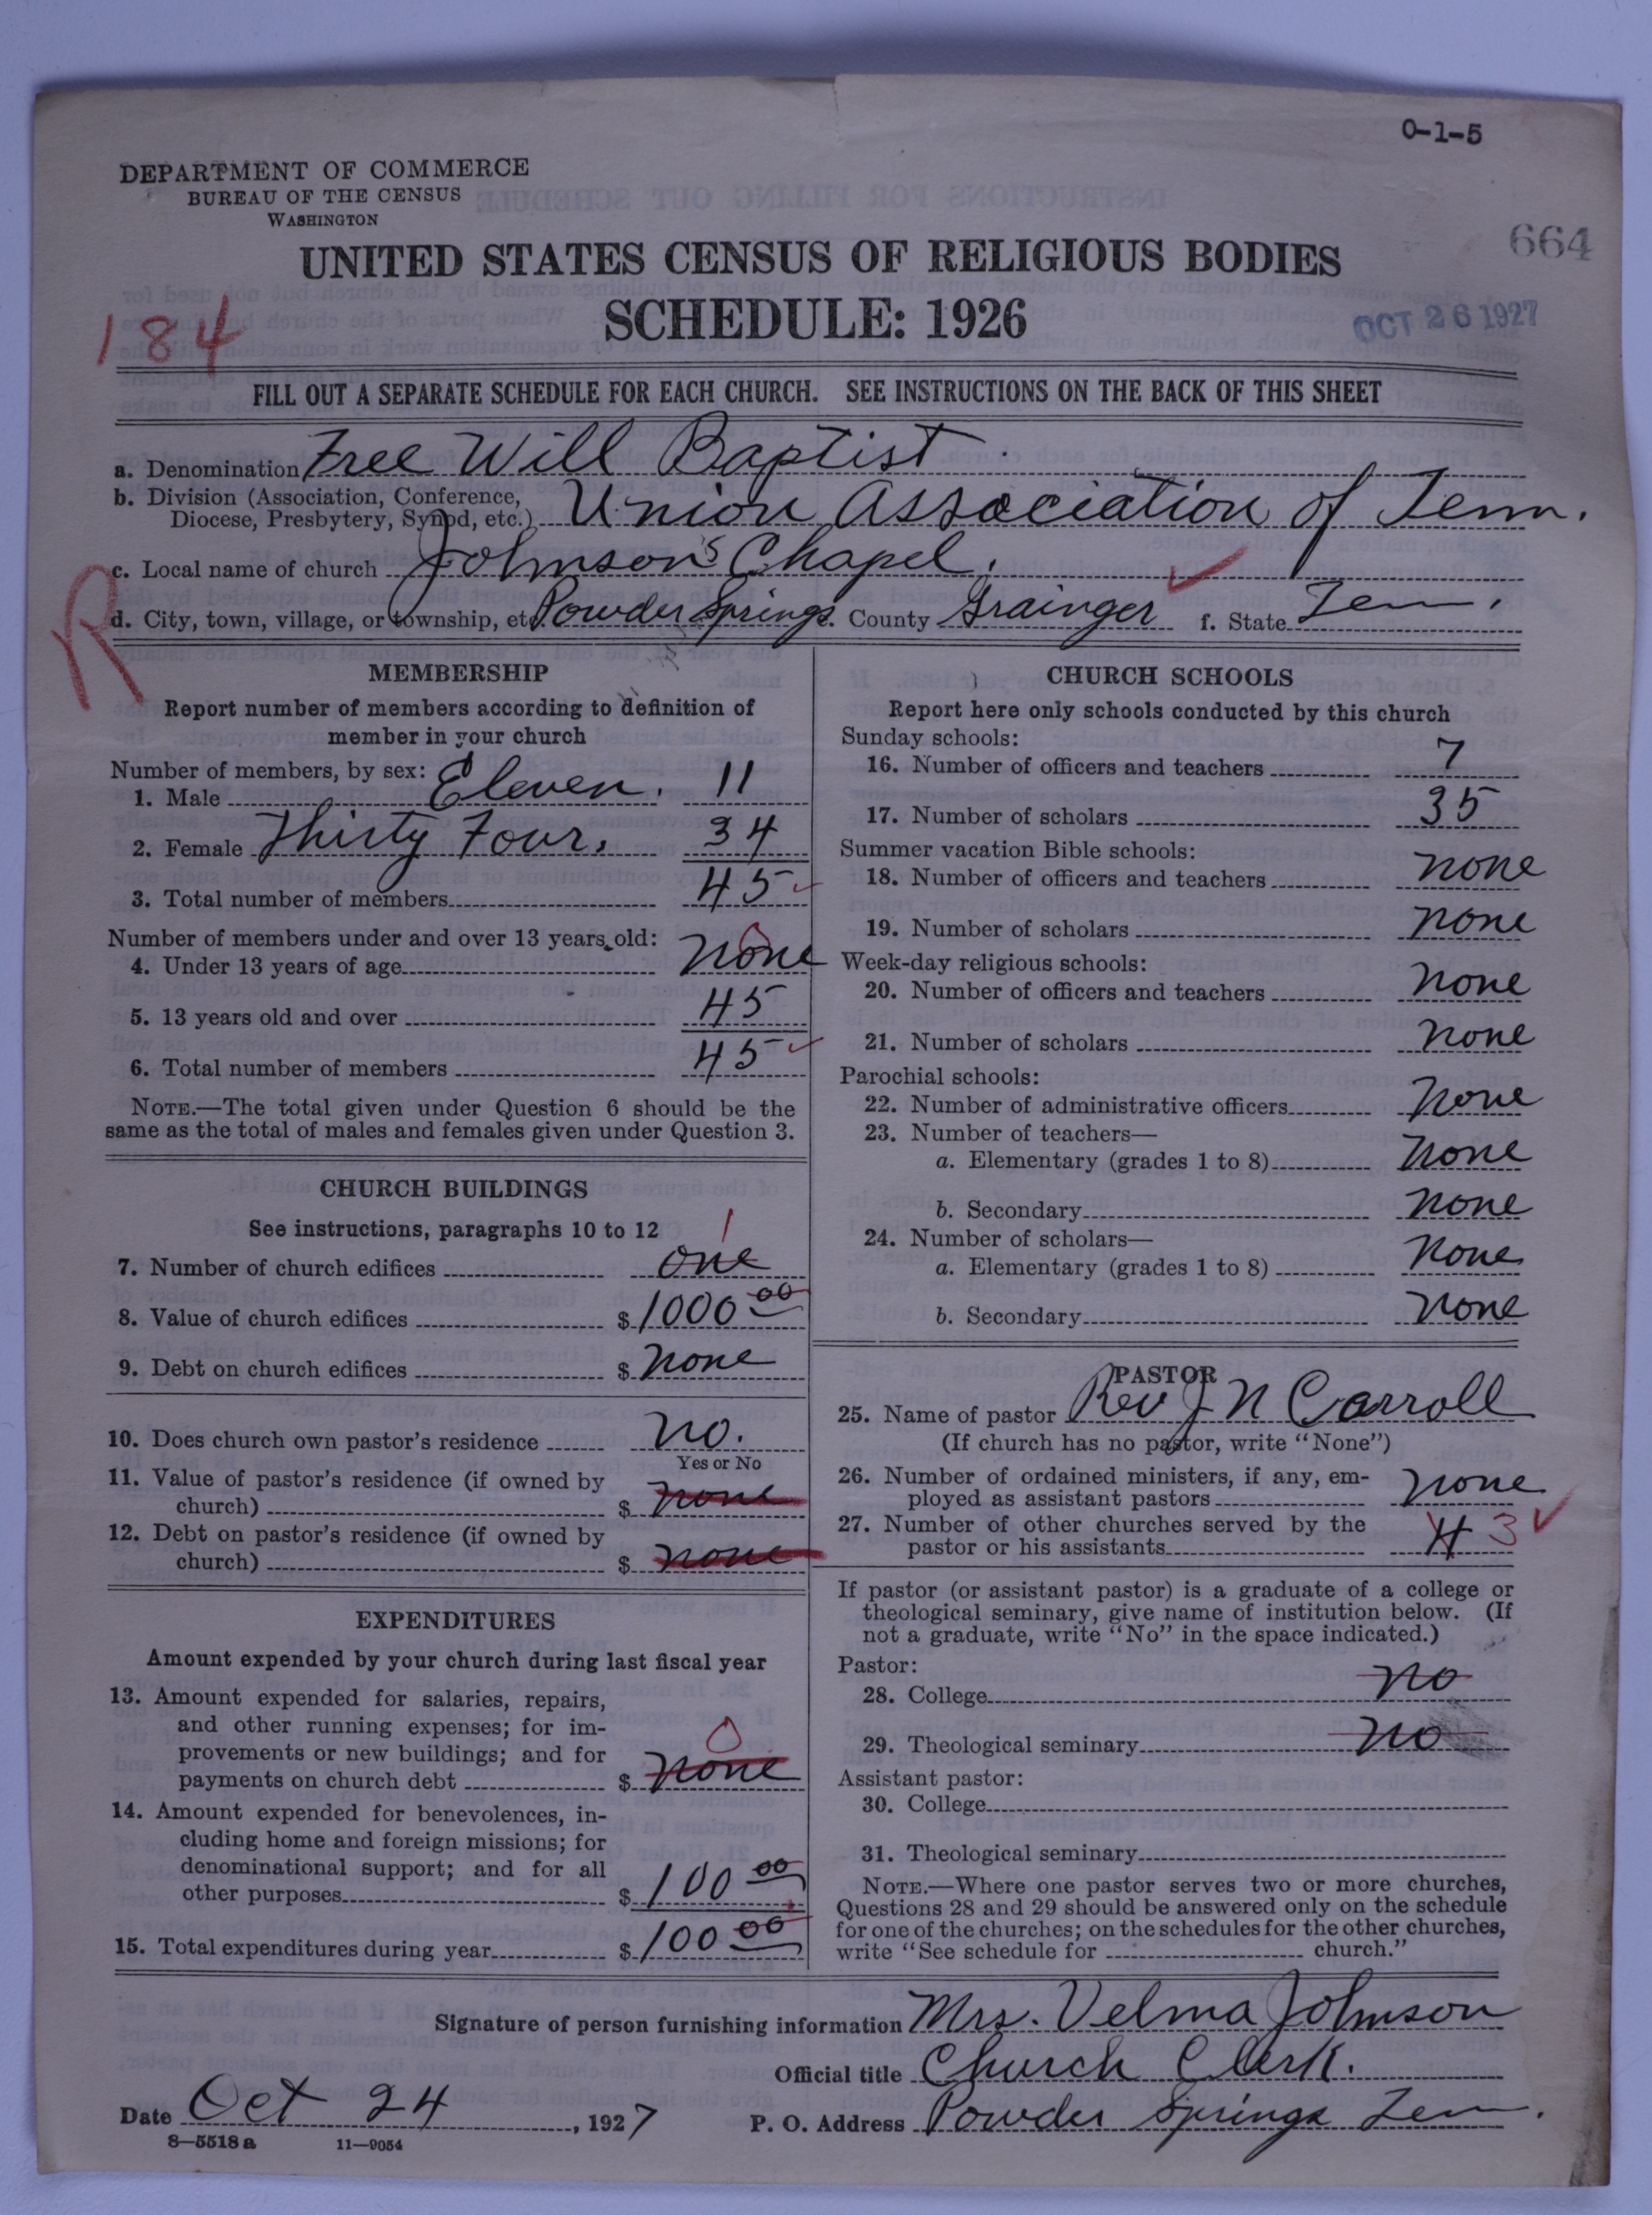 0-1-5
DEPARTMENT OF COMMERCE
BUREAU OF THE CENSUS
WASHINGTON
664
UNITED STATES CENSUS OF RELIGIOUS BODIES
SCHEDULE: 1926
184
OCT 26 1927
FILL OUT A SEPARATE SCHEDULE FOR EACH CHURCH. SEE INSTRUCTIONS ON THE BACK OF THIS SHEET
a. Denomination Free Will Baptist
b. Division (Association, Conference,
Diocese, Presbytery, Synod, etc.) Union Association of Tenn.
c. Local name of church Johnson's Chapel.
R
d. City, town, village, or township, etc Powder Springs. County Grainger f. State Tenn.
MEMBERSHIP
Report number of members according to definition of
member in your church
Number of members, by sex:
1. Male Eleven. 11
2. Female Thirty Four. 34
3. Total number of members 45
Number of members under and over 13 years old:
4. Under 13 years of age none 0
5. 13 years old and over 45
6. Total number of members 45
NOTE.—The total given under Question 6 should be the
same as the total of males and females given under Question 3.
CHURCH BUILDINGS
See instructions, paragraphs 10 to 12
7. Number of church edifices one 1
8. Value of church edifices $ 1000 00
9. Debt on church edifices $ none
10. Does church own pastor's residence no.
Yes or No
11. Value of pastor's residence (if owned by
church) $ none
12. Debt on pastor's residence (if owned by
church) $ none
EXPENDITURES
Amount expended by your church during last fiscal year
13. Amount expended for salaries, repairs,
and other running expenses; for im-
provements or new buildings; and for
payments on church debt $ none 0
14. Amount expended for benevolences, in-
cluding home and foreign missions; for
denominational support; and for all
other purposes $ 100 00
15. Total expenditures during year $ 100 00
CHURCH SCHOOLS
Report here only schools conducted by this church
Sunday schools:
16. Number of officers and teachers 7
17. Number of scholars 35
Summer vacation Bible schools:
18. Number of officers and teachers none
19. Number of scholars none
Week-day religious schools:
20. Number of officers and teachers none
21. Number of scholars none
Parochial schools:
22. Number of administrative officers none
23. Number of teachers—
a. Elementary (grades 1 to 8) none
b. Secondary none
24. Number of scholars—
a. Elementary (grades 1 to 8) none
b. Secondary none
PASTOR
25. Name of pastor Rev J N Carroll
(If church has no pastor, write "None")
26. Number of ordained ministers, if any, em-
ployed as assistant pastors none
27. Number of other churches served by the
pastor or his assistants 4 3
If pastor (or assistant pastor) is a graduate of a college or
theological seminary, give name of institution below. (If
not a graduate, write "No" in the space indicated.)
Pastor:
28. College no
29. Theological seminary no
Assistant pastor:
30. College
31. Theological seminary
NOTE.—Where one pastor serves two or more churches,
Questions 28 and 29 should be answered only on the schedule
for one of the churches; on the schedules for the other churches,
write "See schedule for church."
Signature of person furnishing information Mrs. Velma Johnson
Official title Church Clerk.
Date Oct 24, 1927 P. O. Address Powder Springs Tenn.
8—5518 a 11—9054